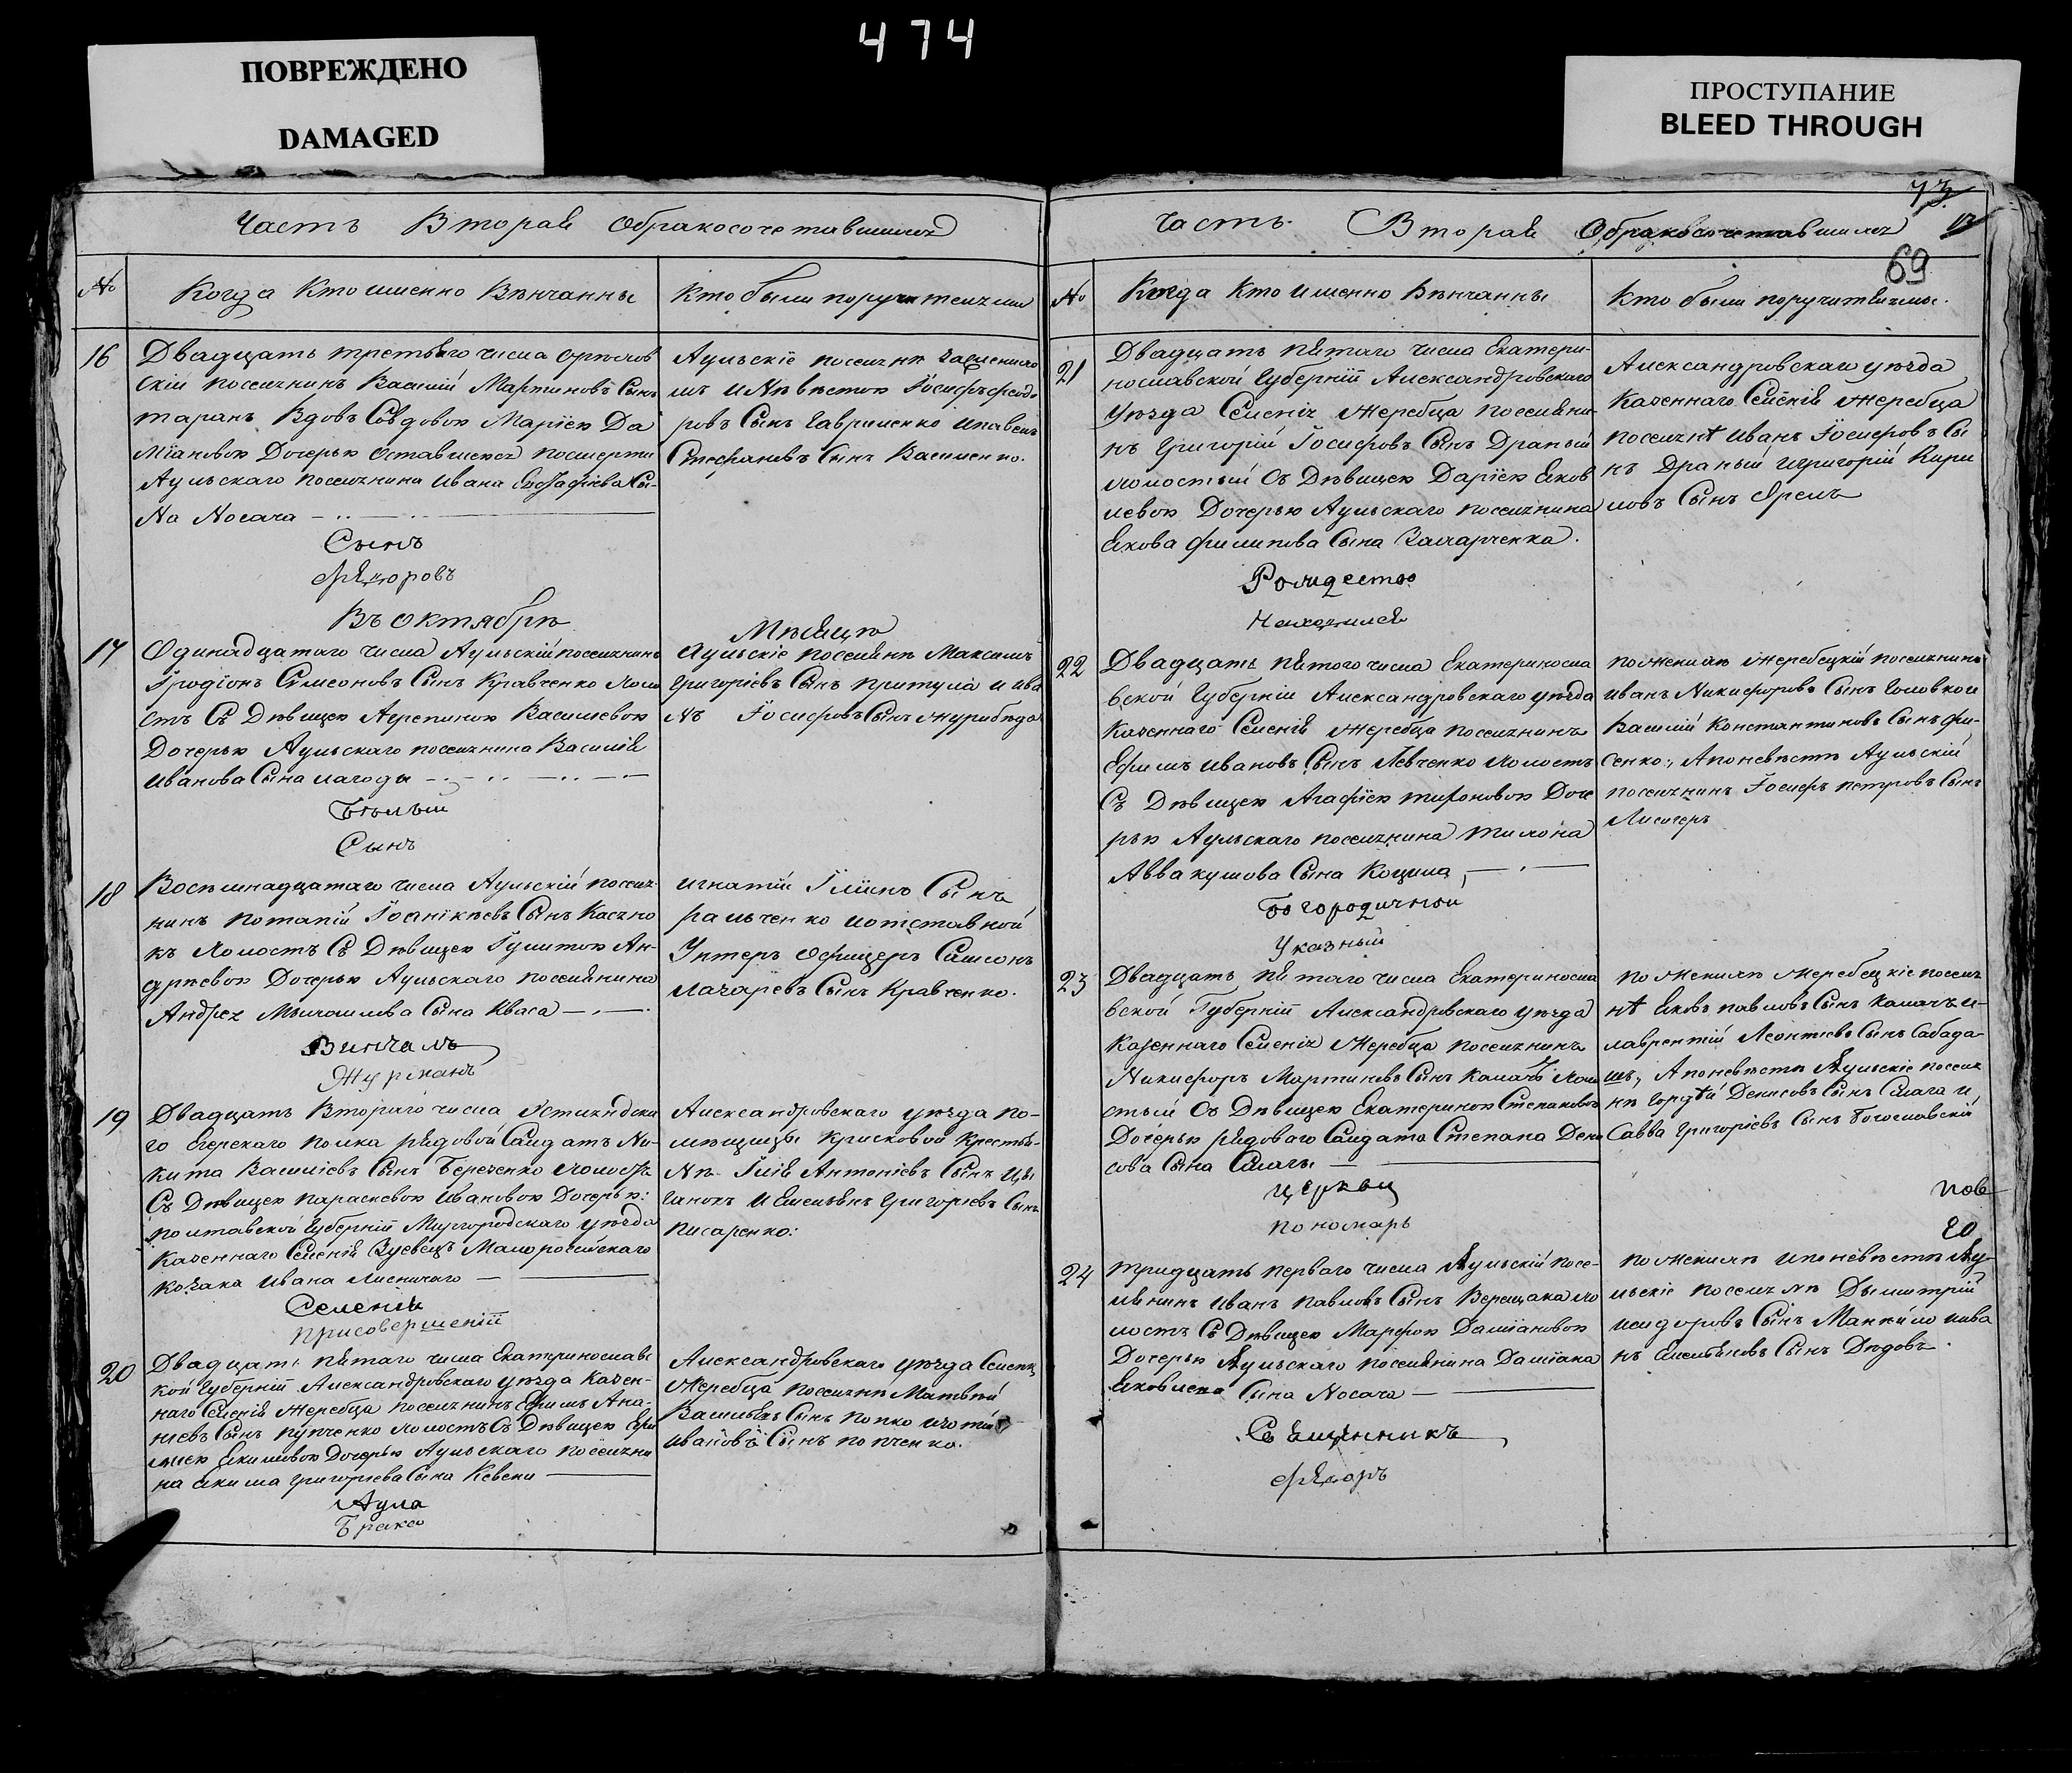 474
ПОВРЕЖДЕНО
DAMAGED
ПРОСТУПАНИЕ
BLEED THROUGH
Часть Вторая Обракосочетавшихся
№ Когда Кто именно Вѣнчанны
Кто были поручителями
16 Двадцать третьяго числа Орѣлов
скій поселянинъ Василій Мартиновъ Сынъ
таранъ Вдовъ Совдовою Маріею Да
міановою Дочерью Оставшеюся посмерти
Аульскаго поселянина Ивана Сы-
На Носача
Сынъ
Ѳеодоровъ
Аульскіе поселянѣ
Іосифъ Ѳеодо
ровъ Сынъ Гавриленко ипавелъ
Стефановъ Сынъ Василенко.
Въ Октябрѣ
Мѣсяцѣ
17 Одинадцатаго числа Аульскій поселянинъ
Іродіонъ Симеоновъ Сынъ Кравченко Холо
стъ Съ Дѣвицею Агрепиною Василіевою
Дочерью Аульскаго поселянина Василія
Иванова Сына лагоды
Бѣлый
Сынъ
Аульскіе поселянѣ Максимъ
Григоріевъ Сынъ притула и Ива
нъ Іосифовъ Сынъ журибѣда
18 Восѣмнадцатаго числа Аульскій поселя-
нинъ потапій Іоаникіевъ Сынъ Касяно
къ Холостъ Съ Дѣвицею Гулитою Ан-
дрѣевою Дочерью Аульскаго поселянина
Андрея Михаилова Сына Кваса
Винчалъ
Журманъ
игнатій Іліинъ Сынъ
ральченко иотставной
Унтеръ Офицеръ Самсонъ
лазаревъ Сынъ Кравченко.
19 Двадцать Втораго числа
го егерскаго полка рядовой Салдатъ Ни-
кита Василіевъ Сынъ Береченко холостъ
Съ Дѣвицею параскевою Ивановою Дочерью:
полтавской Губерніи Миргородскаго уѣзда
Казеннаго Селенія Зуевецъ Малоросійскаго
козака Ивана лисничаго
Селенія
присовершеніи
Александровскаго уѣзда по-
мѣщицы Крисковой Крестья-
нѣ Ілія Антоніевъ Сынъ Цы
ганокъ и Емельянъ Григоріевъ Сынъ
писаренко:
20 Двадцать пятаго числа Екатеринославс
кой Губерніи Александровскаго уѣзда Казен-
наго Селенія жеребца поселянинъ Ефимъ Ана-
ніевъ Сынъ пупченко холостъ Съ Дѣвицею
Екимовою Дочерью Аульскаго поселяни
на екима григоріева Сына Кевски
Аула
Брака
Александровскаго уѣзда Селенія
Жеребца поселянѣ Матвѣй
Васильевъ Сынъ попко
ивановъ Сынъ попченко.
73
Часть Вторая Обракосочетавшихся
69
№ Когда Кто именно Вѣнчанны
Кто были поручителями.
21 Двадцать пятаго числа Екатери-
нославской Губерніи Александровскаго
Уѣзда Селенія жеребца поселяни-
нъ Григорій Іосифовъ Сынъ Драный
холостый Съ Дѣвицею Даріею Еков
левою Дочерью Аульскаго поселянина
Екова филипова Сына Камарченка.
Рождество
Находился
Александровскаго уѣзда
Казеннаго Селенія жеребца
поселянѣ Иванъ Іосифовъ Сы
нъ Драный игригорій Кири
ловъ Сынъ Яремъ
22 Двадцать пятого числа Екатеринослав
вской Губерніи Александровскаго уѣзда
Казеннаго Селенія жеребца поселянинъ
Ефимъ ивановъ Сынъ Левченко холостъ
Съ Дѣвицею Агафіею тихоновою Доче
рью Аульскаго поселянина тихона
Аввакумова Сына Коцина
Богородичной
Указный
пожениху жеребецкій поселянинъ
иванъ Никифоровъ Сынъ головко и
Василій Константиновъ Сынъ фи-
сенко., Апоневѣстѣ Аульскій
поселянинъ Іосифъ петровъ Сынъ
Лисогоръ
23 Двадцать пятаго числа Екатеринослав
вской Губерніи Александровскаго уѣзда
Казеннаго Селенія жеребца поселянинъ
Никифоръ Мартиновъ Сынъ Камачъ Холо
стый Съ Дѣвицею Екатериною Степановою
Дочерью рядоваго Салдата Степана Дени
сова Сына Слагъ
церкви
пономарь
пожениху жеребецкіе поселя
нѣ Яковъ павловъ Сынъ Камачъ и-
лаврентій Леонтіевъ Сынъ Сабада-
шъ., Апоневѣстѣ Аульскіе поселя
нѣ гордѣй Денисовъ Сынъ Слага и
Савва Григоріевъ Сынъ Богославскій
пов
ео
24 тридцать перваго числа Аульскій посе-
лянинъ иванъ павловъ Сынъ Верещака хо
лостъ Съ Дѣвицею Марфою Даміановою
Дочерью Аульскаго поселянина Даміана
Яковлева Сына Носача
Священникъ
Ѳеодоръ
пожениху ипоневѣстѣ Ау-
льскіе поселянѣ Дымитрій
исидоровъ Сынъ Манкило иива
нъ Емельяновъ Сынъ Дѣдовъ.